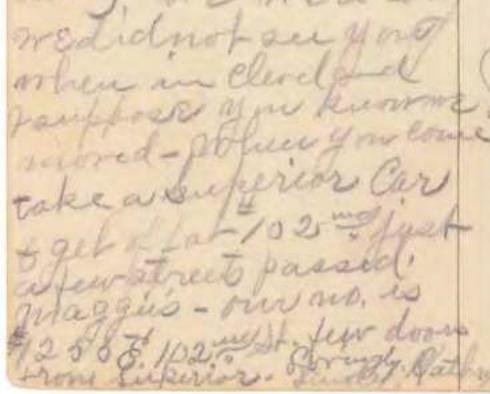 we did not see you
when in Cleveland
I suppose you know we
moved - When you come
take a Superior Car
& get off at #102nd just
a few streets passed
Maggies - our no. is
102nd St. few doors
from Superior. Lovingly, Kathry